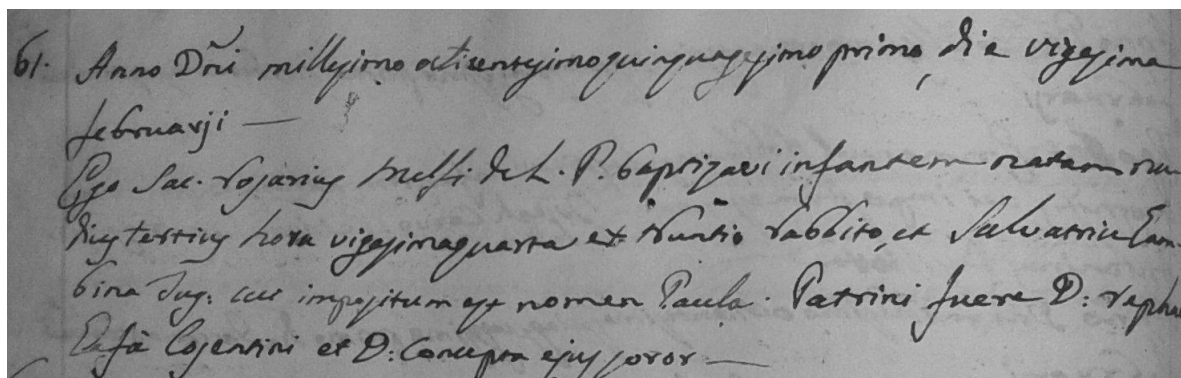 61. Anno Dñi millesimo octicentesimo quinquagesimo primo, die vigesima
februarji —
Ego Sac. Rosarius Melfi de L. P. baptizavi infantem natam nu
dius tertius hora vigesimaquarta ex Nuntio Rabbito, et Salvatrice Cam
bina Jug: cui impositum est nomen Paula. Patrini fuere D: Rapha
Cosentini et D: Concepta ejus soror —